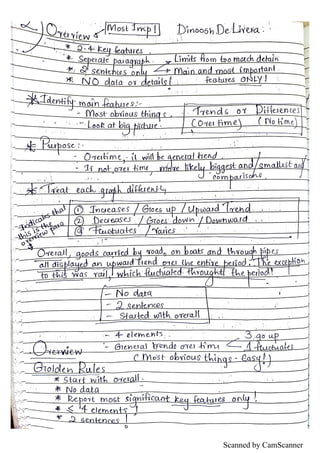 2) Overview :- Most Imp! Dinoosh De Livera
* 2-4 key features.
* Seperate paragraph. → Limits from too much detain
* 2 sentences only → Main and most important
* NO data or details! features ONLY!
* Identify main features:-
- Most obvious things.
- Look at big picture.
Trends or Differences
(Overtime) (No time)
* Purpose:-
- Overtime, it will be general trend
- If not over time, more likely, biggest and/smallest or/
comparisons.
* Treat each graph differently
① Increases / Goes up / Upward Trend
② Decreases / Goes down / Downward
③ fluctuates / Varies
Indicates that
this is the
overview para
Overall, goods carried by road, on boats and through pipes
all displayed an upward trend over the entire period. The exception
to this was rail, which fluctuated throughout the period!
- No data
- 2 sentences
- Started with overall
- 4 elements.
- General trends over time 3 go up
1 fluctuates
Overview (Most obvious things - Easy!)
Golden Rules
* Start with overall.
* No data
* Report most significant key features only!
* ≤ 4 elements!
* 2 sentences!
Scanned by CamScanner